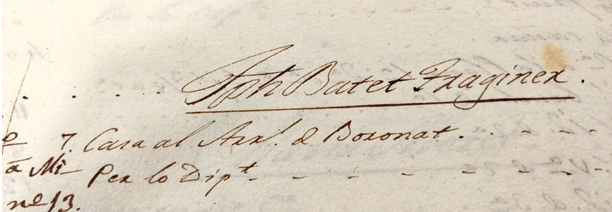 Jph Batet Fraginer.
7. Casa al Arr.l d Boronat.
a Mi Per lo Dip.t
nº 13.